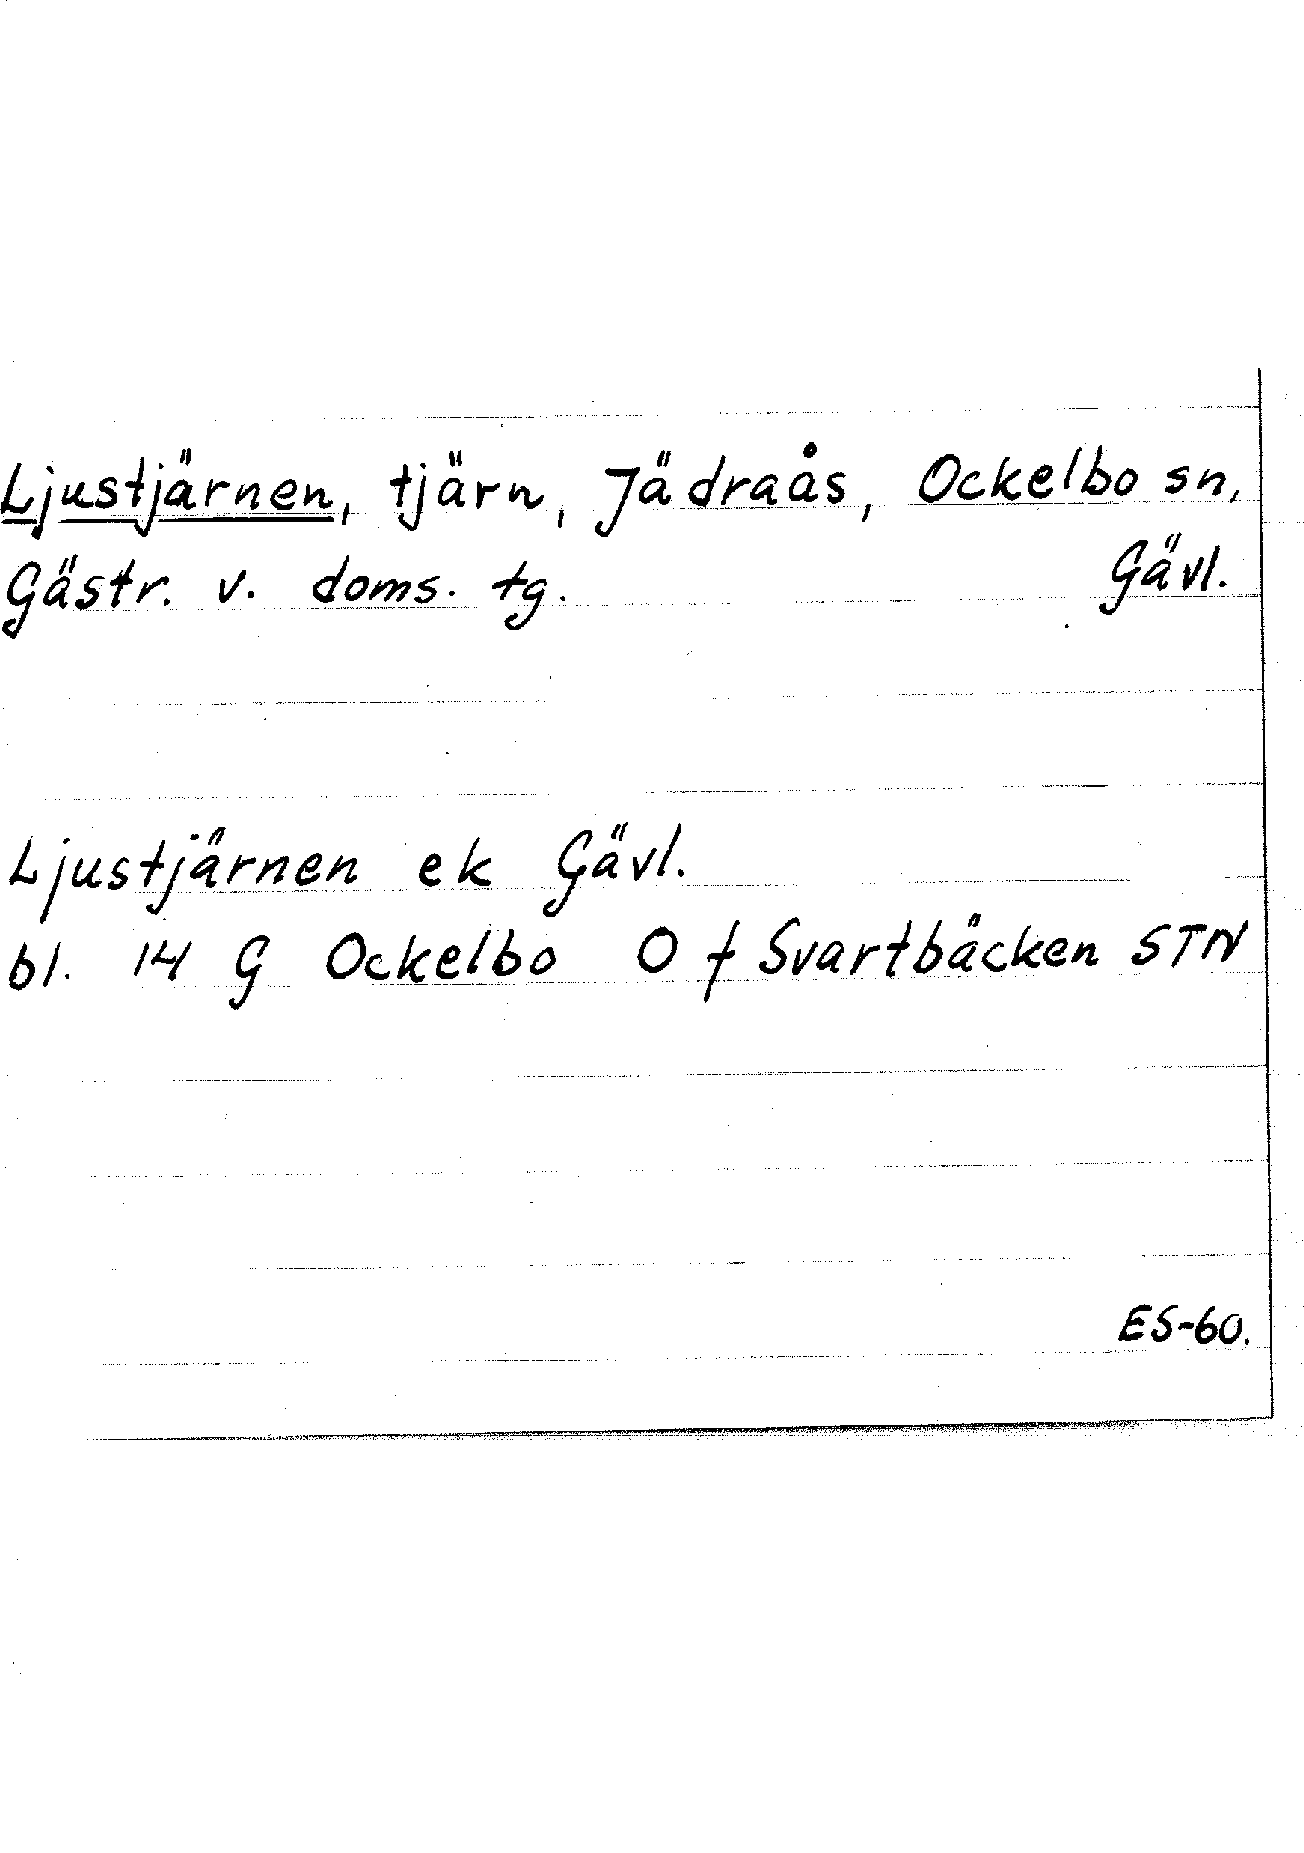 Ljustjärnen, tjärn, Jädraås, Ockelbo sn,
Gästr. v. doms. tg. Gävl.
Ljustjärnen ek Gävl.
bl. 14 G Ockelbo O f Svartbäcken STN
ES-60.